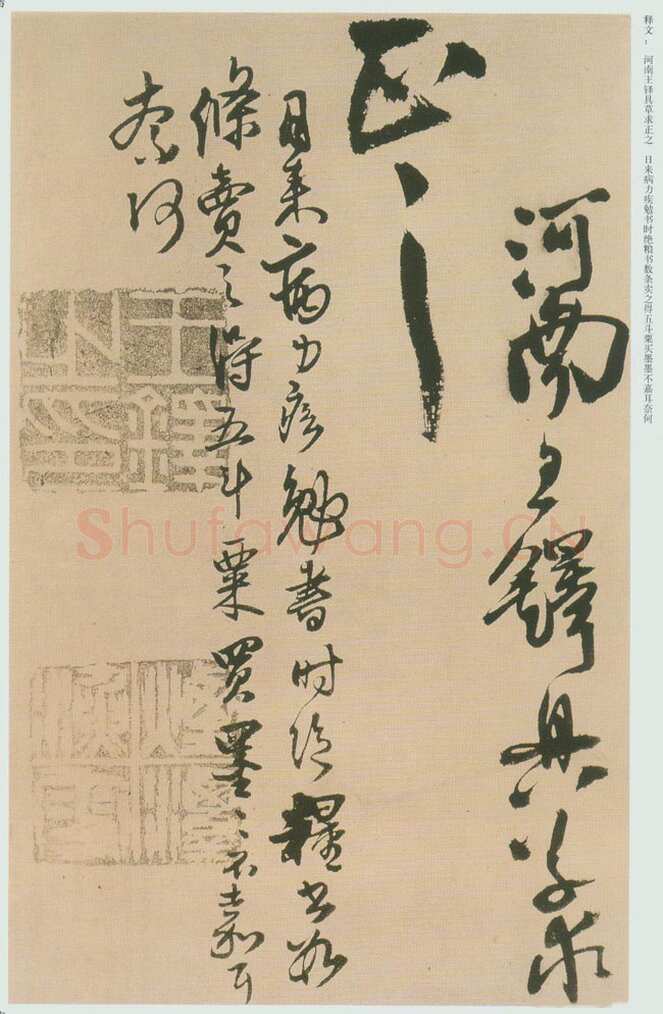 释文： 河南王铎具草求正之 日来病力疾勉书时绝粮书数条卖之得五斗粟买墨墨不嘉耳奈何
河南王鐸具草求
正之
日来病力疾勉書时絶糧书数
條賣之得五斗粟買墨〻不嘉耳
奈何
王鐸
Shufawang.cn